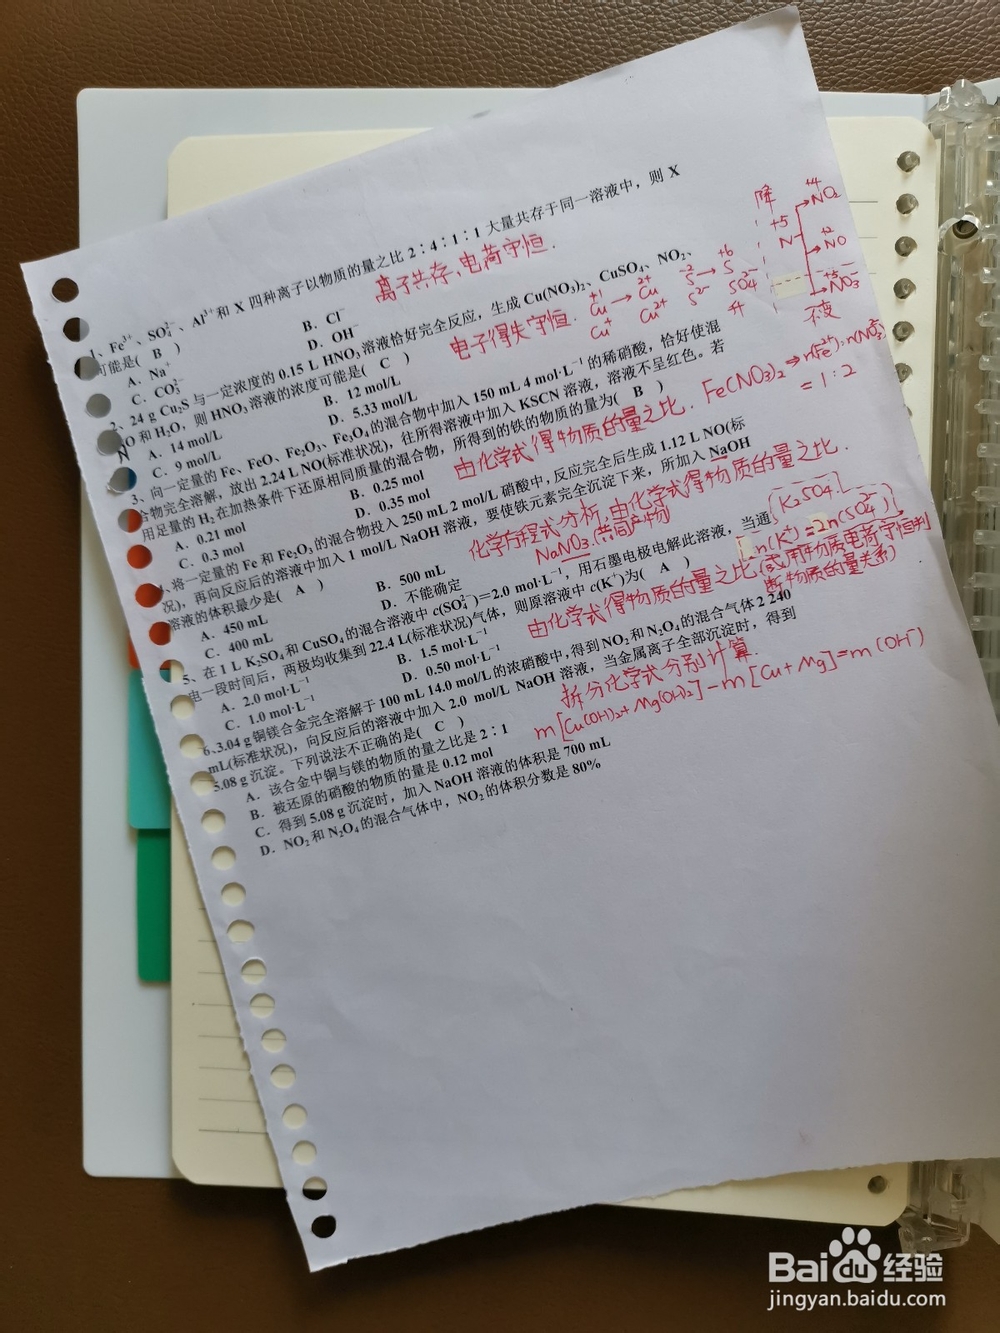 1、Fe³⁺、SO₄²⁻、Al³⁺和 X 四种离子以物质的量之比 2∶4∶1∶1 大量共存于同一溶液中，则 X
可能是( B )
离子共存、电荷守恒.
A．Na⁺ B．Cl⁻
C．CO₃²⁻ D．OH⁻
2、24 g Cu₂S 与一定浓度的 0.15 L HNO₃ 溶液恰好完全反应，生成 Cu(NO₃)₂、CuSO₄、NO₂、
NO 和 H₂O，则 HNO₃ 溶液的浓度可能是( C )
电子得失守恒.
+1 2+ -2 +6
Cu → Cu S → S
Cu⁺ Cu²⁺ S²⁻ SO₄²⁻
升
降
+5
N
+4
NO₂
+2
NO
+5
NO₃⁻
不变
A．14 mol/L B．12 mol/L
C．9 mol/L D．5.33 mol/L
3、向一定量的 Fe、FeO、Fe₂O₃、Fe₃O₄ 的混合物中加入 150 mL 4 mol·L⁻¹ 的稀硝酸，恰好使混
合物完全溶解，放出 2.24 L NO(标准状况)，往所得溶液中加入 KSCN 溶液，溶液不呈红色。若
用足量的 H₂ 在加热条件下还原相同质量的混合物，所得到的铁的物质的量为( B )
由化学式得物质的量之比. Fe(NO₃)₂ ⇒ n(Fe²⁺):n(NO₃⁻)
=1:2
A．0.21 mol B．0.25 mol
C．0.3 mol D．0.35 mol
、将一定量的 Fe 和 Fe₂O₃ 的混合物投入 250 mL 2 mol/L 硝酸中，反应完全后生成 1.12 L NO(标
况)，再向反应后的溶液中加入 1 mol/L NaOH 溶液，要使铁元素完全沉淀下来，所加入 NaOH
溶液的体积最少是( A )
化学方程式分析，由化学式得物质的量之比.
NaNO₃.(共同产物)
A．450 mL B．500 mL
C．400 mL D．不能确定
5、在 1 L K₂SO₄ 和 CuSO₄ 的混合溶液中 c(SO₄²⁻)=2.0 mol·L⁻¹，用石墨电极电解此溶液，当通
电一段时间后，两极均收集到 22.4 L(标准状况)气体，则原溶液中 c(K⁺)为( A )
K₂SO₄
n(K⁺)=2n(SO₄²⁻)
由化学式得物质的量之比.(或用物质电荷守恒判
断物质的量关系)
A．2.0 mol·L⁻¹ B．1.5 mol·L⁻¹
C．1.0 mol·L⁻¹ D．0.50 mol·L⁻¹
6、3.04 g 铜镁合金完全溶解于 100 mL 14.0 mol/L 的浓硝酸中，得到 NO₂ 和 N₂O₄ 的混合气体 2 240
mL(标准状况)，向反应后的溶液中加入 2.0 mol/L NaOH 溶液，当金属离子全部沉淀时，得到
5.08 g 沉淀。下列说法不正确的是( C )
拆分化学式分别计算.
m[Cu(OH)₂+Mg(OH)₂]-m[Cu+Mg]=m(OH⁻)
A．该合金中铜与镁的物质的量之比是 2∶1
B．被还原的硝酸的物质的量是 0.12 mol
C．得到 5.08 g 沉淀时，加入 NaOH 溶液的体积是 700 mL
D．NO₂ 和 N₂O₄ 的混合气体中，NO₂ 的体积分数是 80%
Baidu经验
jingyan.baidu.com